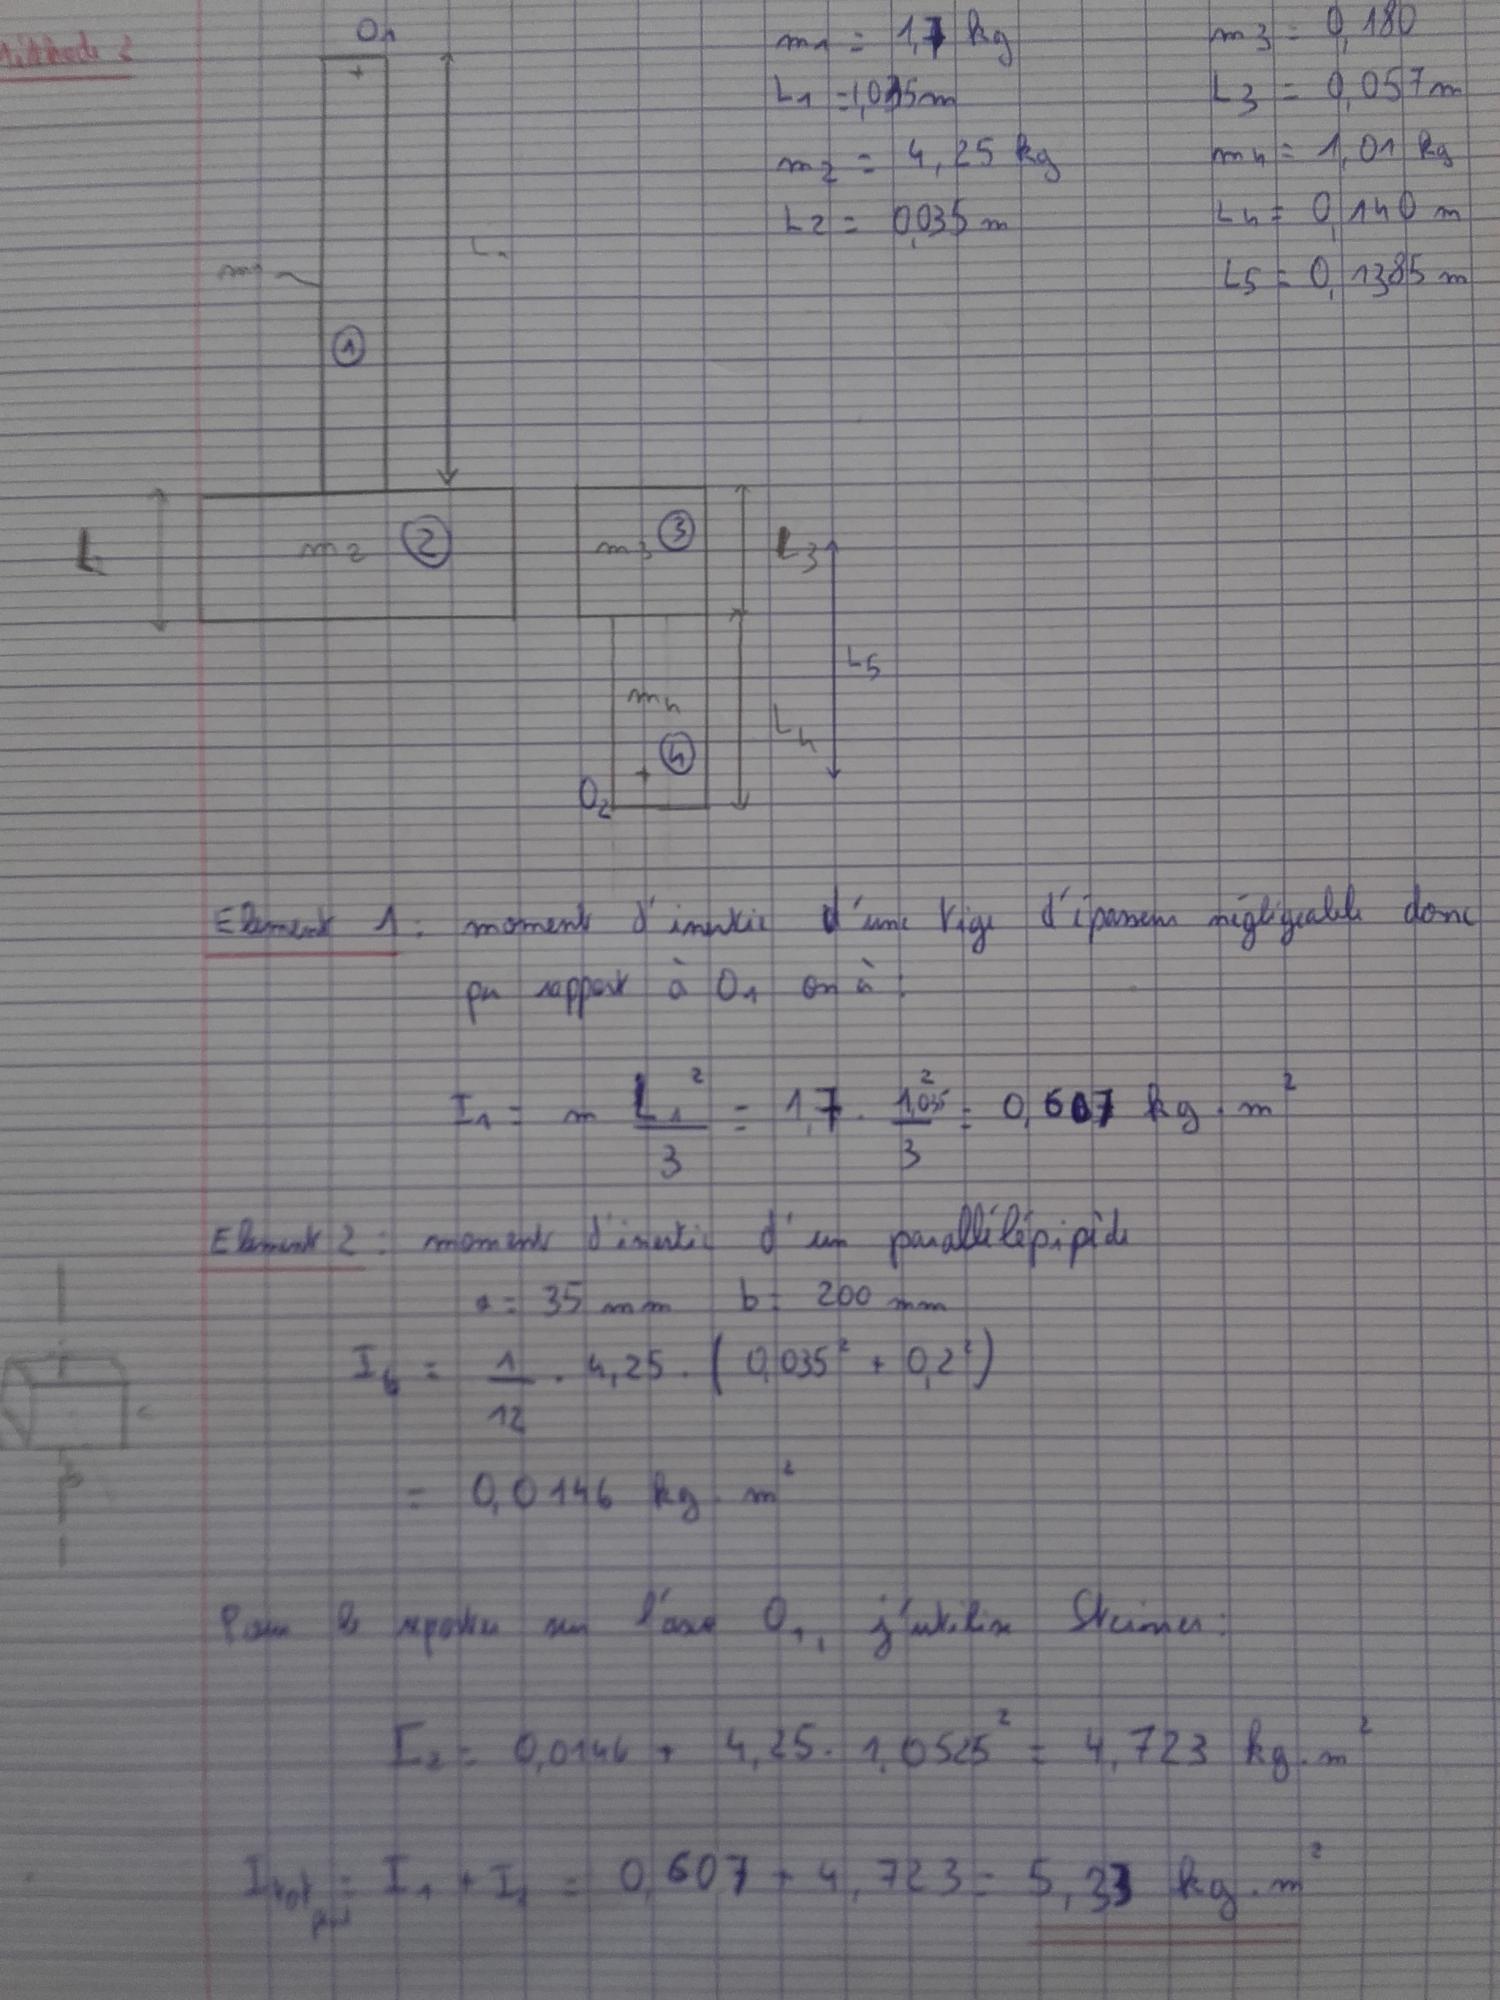 Méthode 2
O1
m1 = 1,7 kg
L1 = 1,035 m
m2 = 4,25 kg
L2 = 0,035 m
m3 = 0,180
L3 = 0,057 m
m4 = 1,01 kg
L4 = 0,140 m
L5 = 0,1385 m
m1
L1
1
L
m2 2
m3 3
L3
L5
m4
L4
4
O2
Element 1 : moment d'inertie d'une tige d'épaisseur négligeable donc
par rapport à O1 on à :
I1 = m L1² / 3 = 1,7 . 1,035² / 3 = 0,607 kg . m²
Element 2 : moment d'inertie d'un parallélépipède
a = 35 mm b = 200 mm
I6 = 1/12 . 4,25 . ( 0,035² + 0,2² )
= 0,0146 kg . m²
Pour le reporter sur l'axe O1, j'utilise Steiner :
I2 = 0,0146 + 4,25 . 1,0525² = 4,723 kg . m²
= I1 + I2 = 0,607 + 4,723 = 5,33 kg . m²